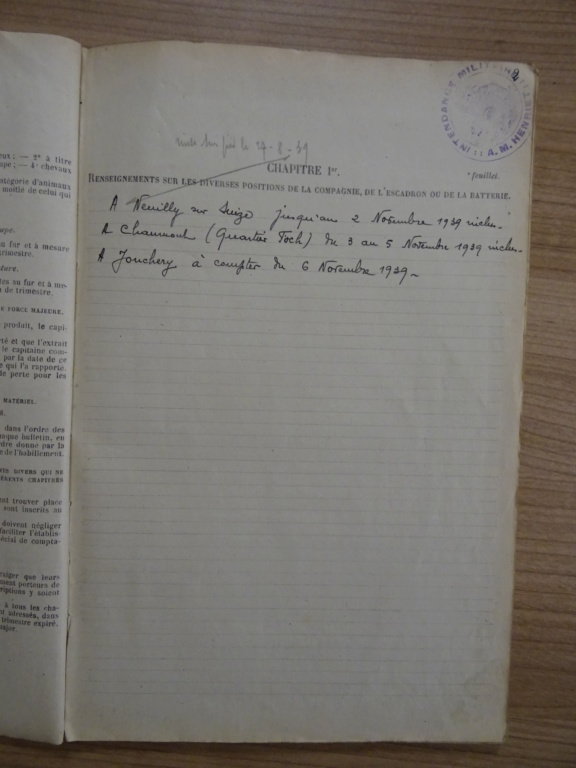 eux; — 2° à titre
pe; — 4° chevaux
atégorie d'animaux
motte de celui qui
ape.
u fur et à mesure
rimestre.
ture.
tes au fur et à me-
n de trimestre.
E FORCE MAJEURE.
produit, le capi-
rté et que l'extrait
le capitaine com-
par la date de ce
e qui l'a rapporté.
de perte pour les
MATÉRIEL.
dans l'ordre des
aque bulletin, en
rdre donné par la
e de l'habillement.
DES DIVERS QUI NE
FÉRENTS CHAPITRES
ent trouver place
sont inscrits au
doivent négliger
faciliter l'établis-
écial de compta-
exiger que leurs
ment porteurs de
riptions y soient
à tous les cha-
nt adressés, dans
trimestre expiré,
major.
INTENDANCE MILITAIRE
A. M. HENNEQUIN
sur pied le 27-8-39
CHAPITRE Ier.
e feuillet.
RENSEIGNEMENTS SUR LES DIVERSES POSITIONS DE LA COMPAGNIE, DE L'ESCADRON OU DE LA BATTERIE.
A Neuilly sur Suize jusqu'au 2 Novembre 1939 inclus.
A Chaumont (Quartier Foch) du 3 au 5 Novembre 1939 inclus.
A Jonchery à compter du 6 Novembre 1939.